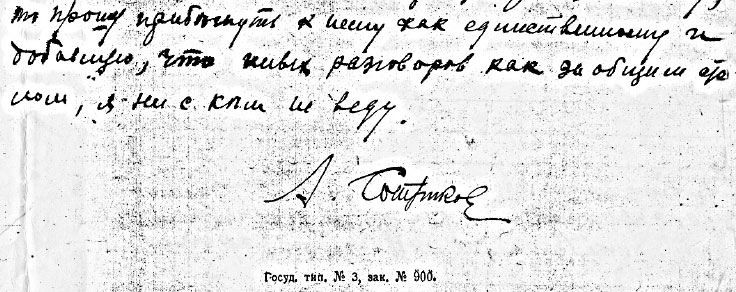 то прошу прибегнуть к нему как единственному и
добавляю, что иных разговоров как за общим сто
лом, я ни с кем не веду.
А.
Госуд. тип. № 3, зак. № 900.